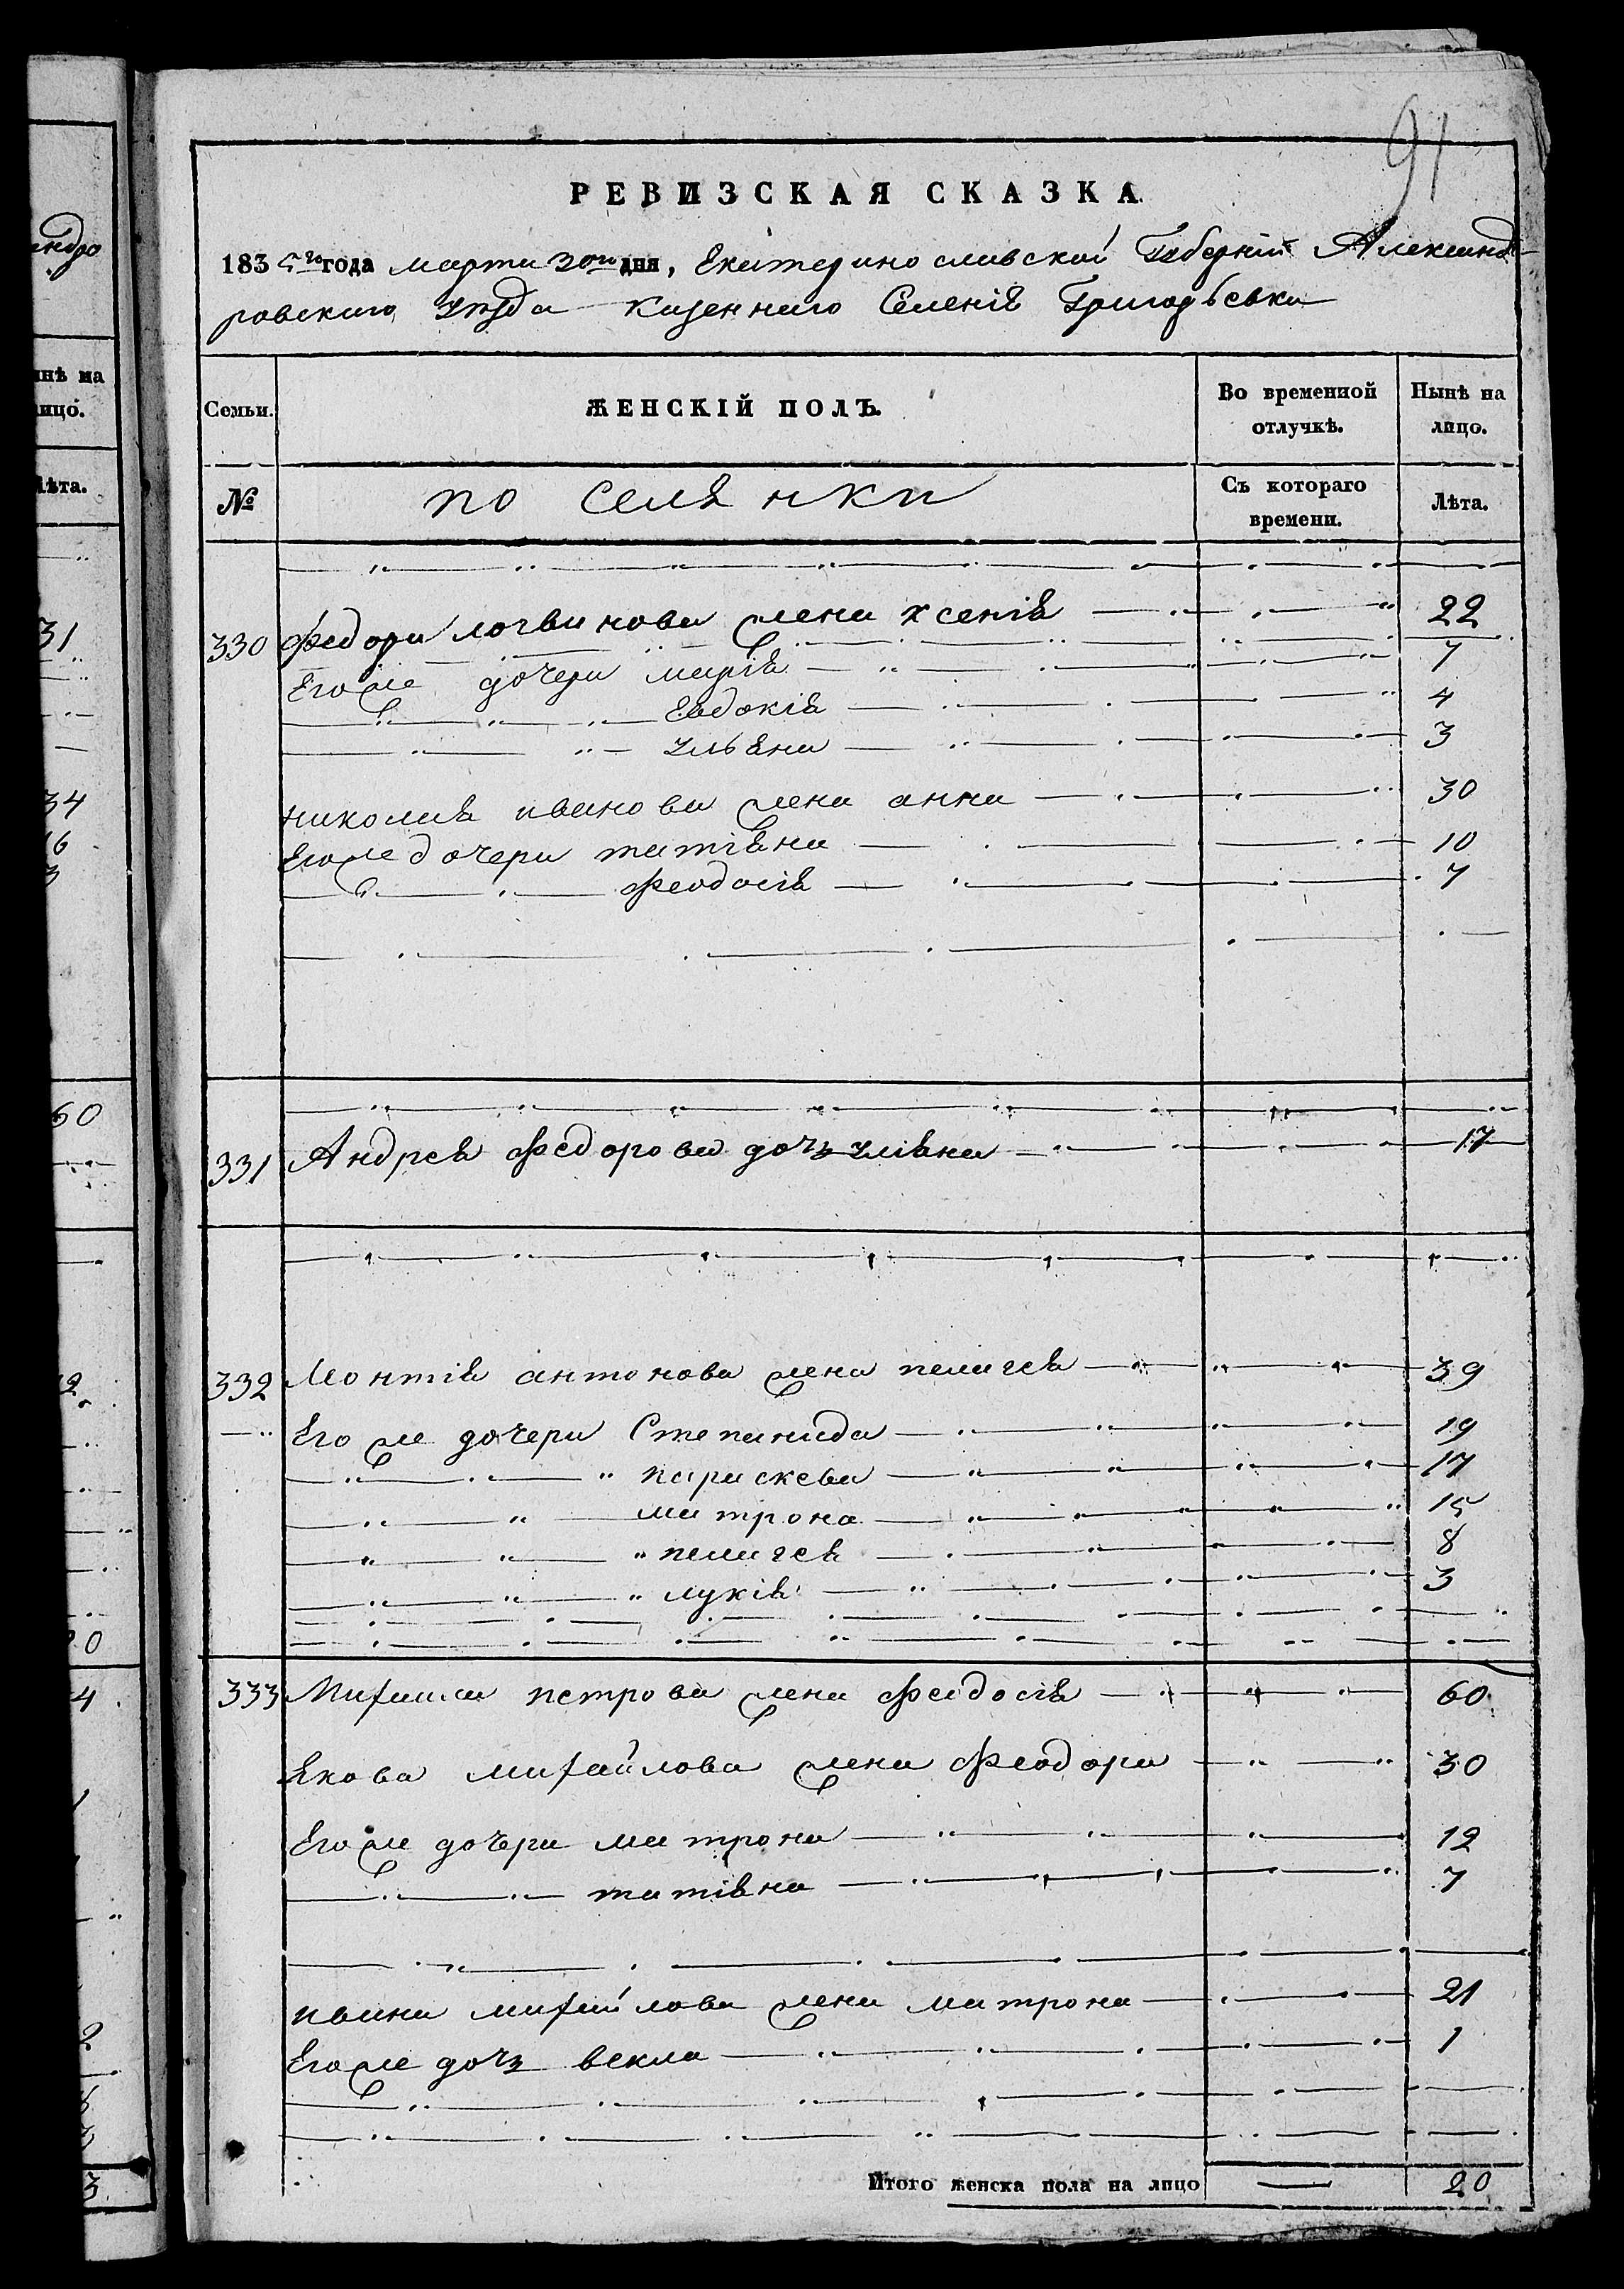 91
РЕВИЗСКАЯ СКАЗКА
1835го года марта 30го дня, Екатеринославской Губерніи Александ-
ровскаго уезда казеннаго Селенія Григорьевки
Семьи. ЖЕНСКІЙ ПОЛЪ. Во временной отлучкѣ. Нынѣ на лицо.
№ поселянки Съ котораго времени. Лѣта.
330 Федора логвинова жена ксенія 22
Егоже дочери марія 7
Евдокія 4
ульяна 3
николая иванова жена анна 30
Егоже дочери татіяна 10
Феодосія 7
331 Андрея Федорова дочъ уліяна 17
332 Леонтія антонова жена пелагея 39
Его же дочери Степанида 19
параскева 17
матрона 15
пелагея 8
лукія 3
333 Михаила петрова жена Феодосія 60
якова михайлова жена Феодора 30
Егоже дочери матрона 12
татіяна 7
ивана михайлова жена матрона 21
Егоже дочъ векла 1
Итого женска пола на лицо — 20